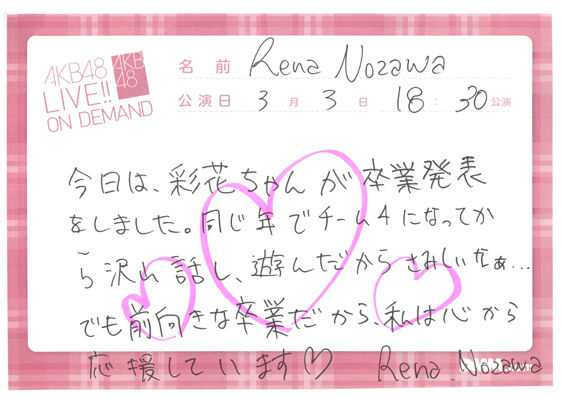 AKB48
LIVE!!
ON DEMAND
AKB
48
名前 Rena Nozawa
公演日 3月3日 18:30公演
今日は、彩花ちゃんが卒業発表
をしました。同じ年でチーム4になってか
ら沢山話し、遊んだからさみしいなぁ...
でも前向きな卒業だから、私は心から
応援しています♡ Rena Nozawa